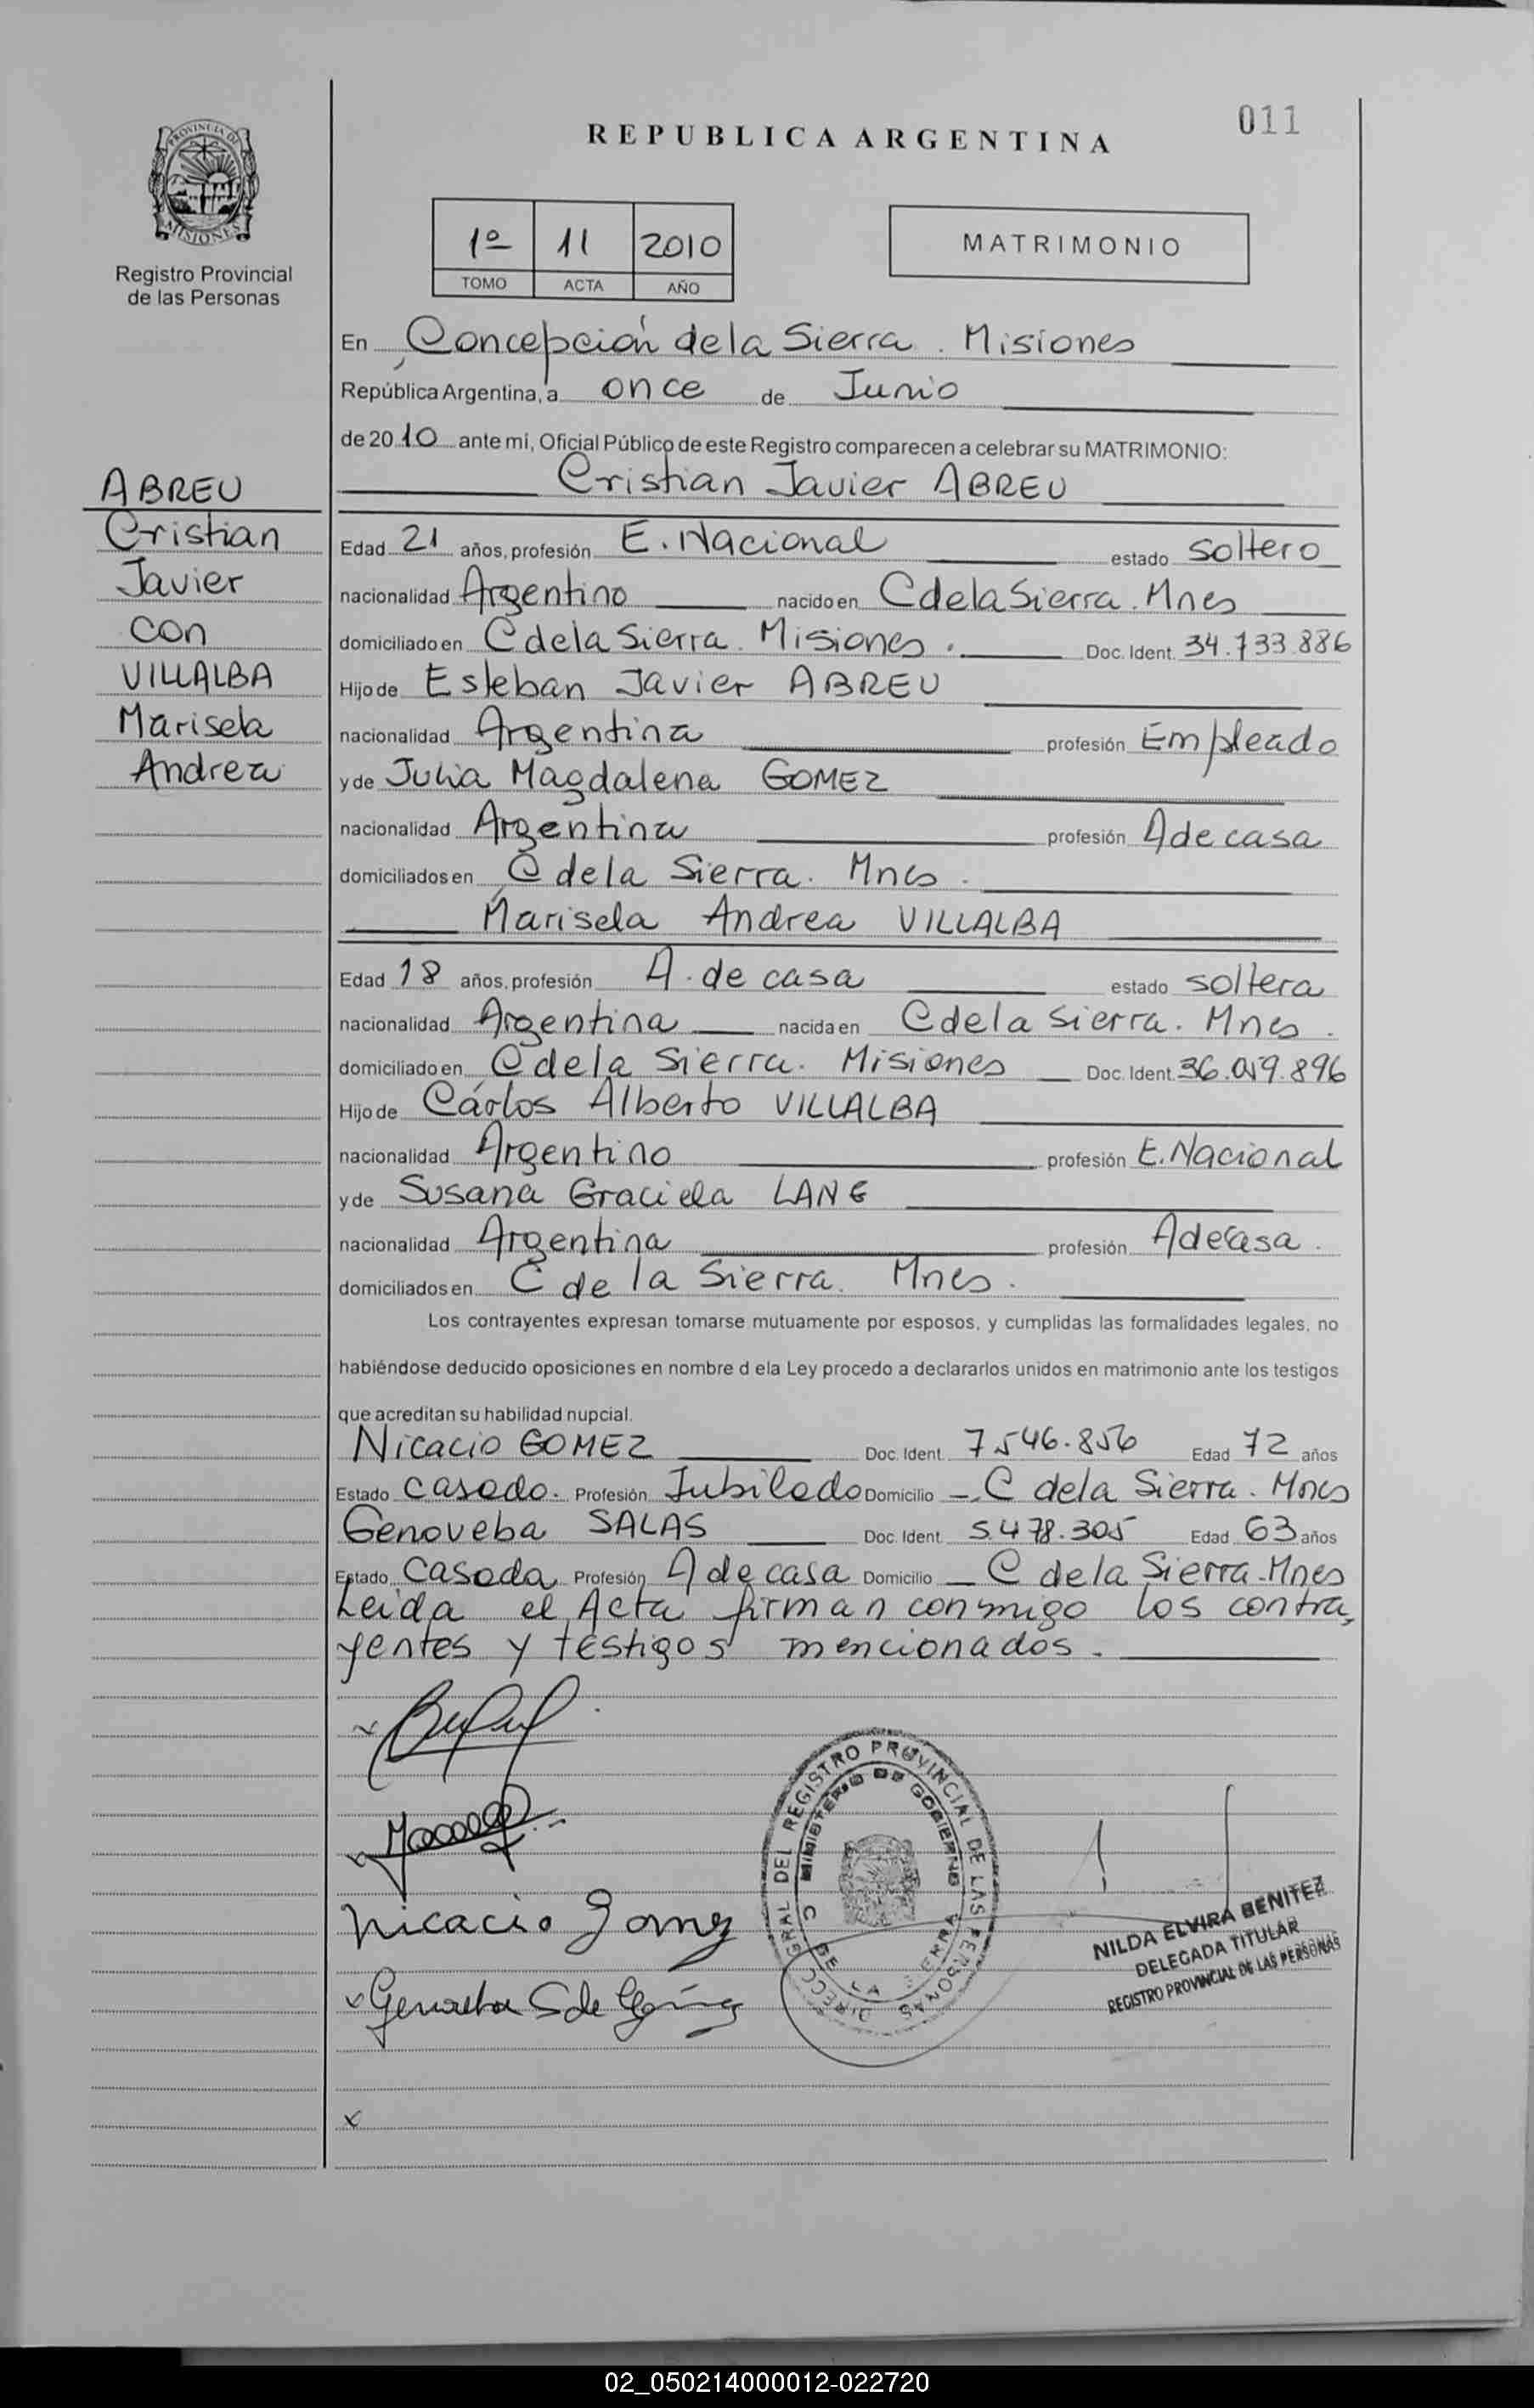 011
REPUBLICA ARGENTINA
PROVINCIA DE
MISIONES
Registro Provincial
de las Personas
1º 11 2010
TOMO ACTA AÑO
MATRIMONIO
En Concepción de la Sierra. Misiones
República Argentina, a once de Junio
de 2010 ante mí, Oficial Público de este Registro comparecen a celebrar su MATRIMONIO:
ABREU
Cristian
Javier
con
VILLALBA
Marisela
Andrea
Cristian Javier ABREU
Edad 21 años, profesión E. Nacional estado soltero
nacionalidad Argentino nacido en C de la Sierra. Mnes
domiciliado en C de la Sierra. Misiones. Doc. Ident. 34.733.886
Hijo de Esteban Javier ABREU
nacionalidad Argentina profesión Empleado
y de Julia Magdalena GOMEZ
nacionalidad Argentina profesión A de casa
domiciliados en C de la Sierra. Mnes.
Marisela Andrea VILLALBA
Edad 18 años, profesión A. de casa estado soltera
nacionalidad Argentina nacida en C de la Sierra. Mnes.
domiciliado en C de la Sierra. Misiones Doc. Ident. 36.059.896
Hijo de Carlos Alberto VILLALBA
nacionalidad Argentino profesión E. Nacional
y de Susana Graciela LANG
nacionalidad Argentina profesión A de casa.
domiciliados en C de la Sierra. Mnes.
Los contrayentes expresan tomarse mutuamente por esposos, y cumplidas las formalidades legales, no
habiéndose deducido oposiciones en nombre d ela Ley procedo a declararlos unidos en matrimonio ante los testigos
que acreditan su habilidad nupcial.
Nicacio GOMEZ Doc. Ident. 7.546.856 Edad 72 años
Estado casado. Profesión Jubilado Domicilio C de la Sierra. Mnes
Genoveba SALAS Doc. Ident. 5.478.305 Edad 63 años
Estado casada Profesión A de casa Domicilio C de la Sierra. Mnes
Leida el Acta firman conmigo los contra,
yentes y testigos mencionados.
Nicacio Gomez
DIRECC. GRAL DEL REGISTRO PROVINCIAL DE LAS PERSONAS
MINISTERIO DE GOBIERNO
C DE LA SIERRA
NILDA ELVIRA BENITEZ
DELEGADA TITULAR
REGISTRO PROVINCIAL DE LAS PERSONAS
x
02_050214000012-022720